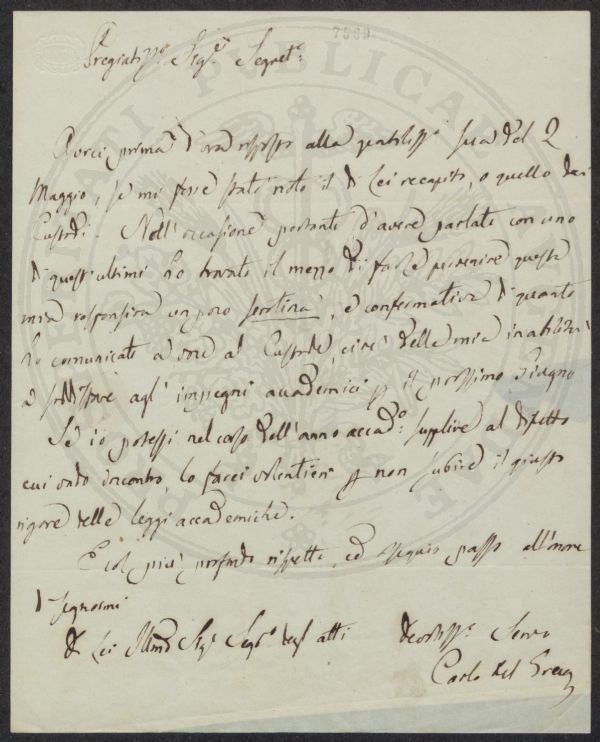 7969
Pregiatiss.º Sig.r Segret.º
prima d'ora risposto alla gentiliss.ª sua del 2
Maggio, se mi fosse stato noto il di Lei recapito, o quello dei
Custodi. Nell'occasione pertanto d'avere parlato con uno
di quest'ultimi ho trovato il mezzo di farle pervenire questa
mia responsiva un poco , e confermativa di quanto
ho comunicato a voce al Custode, cioè della mia inabilità
a soddisfare agl'impegni accademici p il prossimo Giugno
Se io potessi nel corso dell'anno accad.º supplire al difetto
cui vado incontro, lo farei volentieri p non subire il giusto
rigore delle leggi accademiche.
E col più profondo rispetto, ed ossequio passo all'onore
di segnarmi
di Lei Illmo Sig.r Segr.º degl'atti devotiss.º Servo
Carlo del